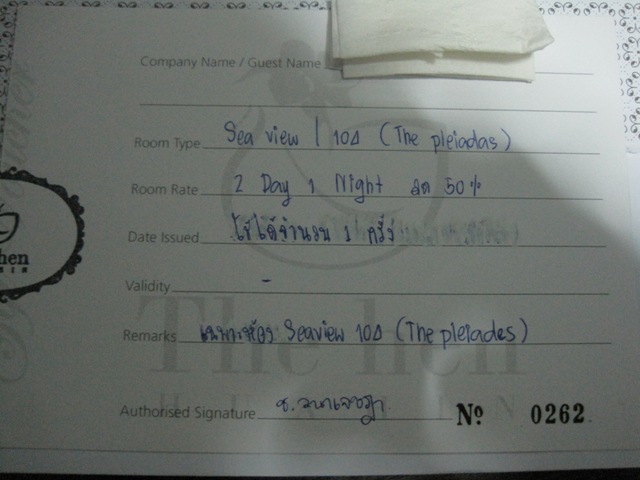 Company Name / Guest Name
Room Type Sea view / 10Δ (The pleiadas)
Room Rate 2 Day 1 Night ลด 50%
Date Issued ใช้ได้จำนวน 1 ครั้ง
Validity -
Remarks เฉพาะห้อง Seaview 10Δ (The pleiades)
The hen
HUA HIN
Authorised Signature
Nº 0262
hen